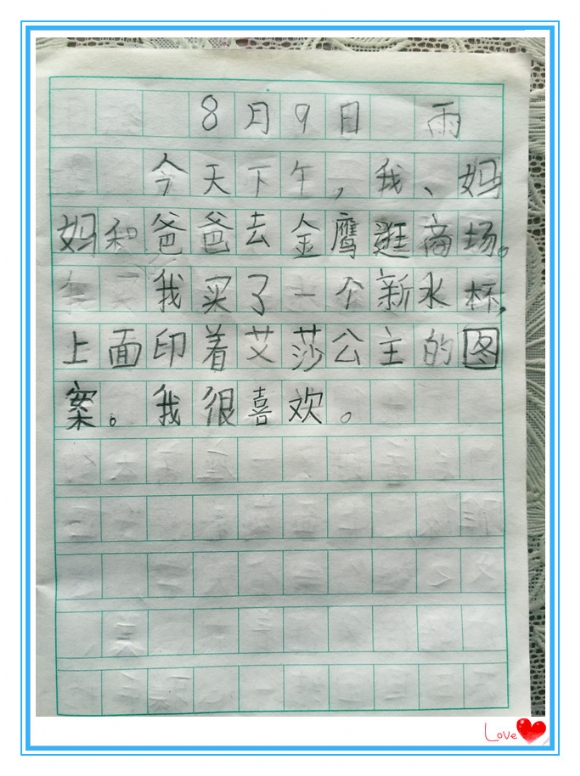 8月9日 雨
今天下午，我、妈
妈和爸爸去金鹰逛商场。
我买了一个新水杯，
上面印着艾莎公主的图
案。我很喜欢。
Love